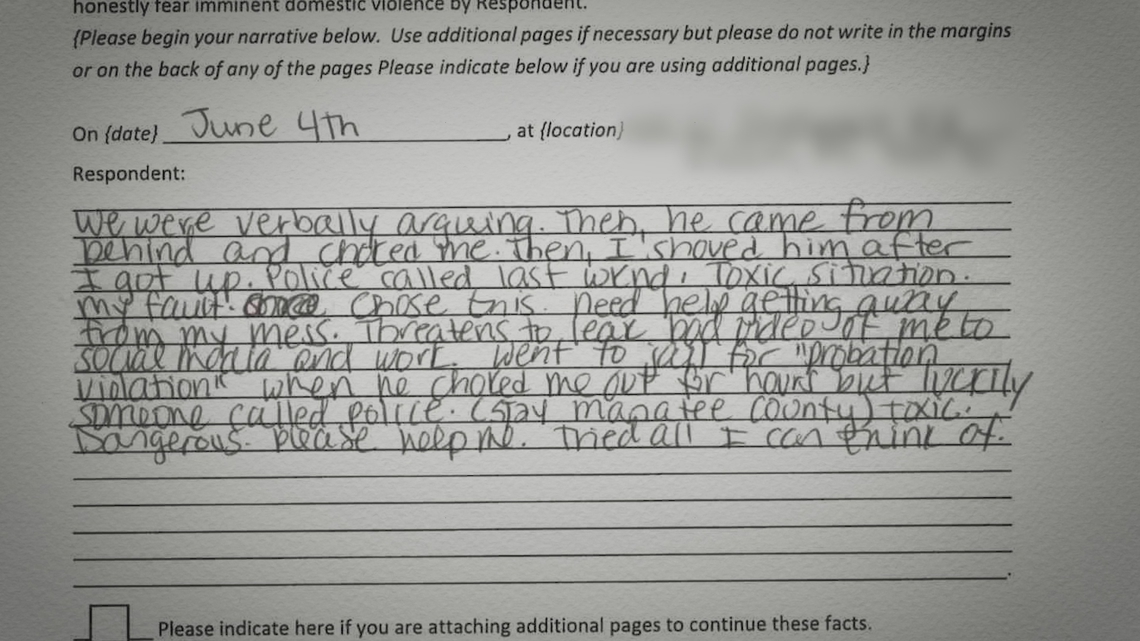 honestly fear imminent domestic violence by Respondent.
{Please begin your narrative below. Use additional pages if necessary but please do not write in the margins
or on the back of any of the pages Please indicate below if you are using additional pages.}
On {date} June 4th, at {location}
Respondent:
We were verbally arguing. Then, he came from
behind and choked me. Then, I shoved him after
I got up. Police called last wknd. Toxic situation.
my fault. Chose this. need help getting away
from my mess. Threatens to leak bad video of me to
social media and work. Went to jail for "probation
violation" when he choked me out for hours but luckily
someone called police. (Stay manatee county) toxic.
Dangerous. please help me. Tried all I can think of.
Please indicate here if you are attaching additional pages to continue these facts.